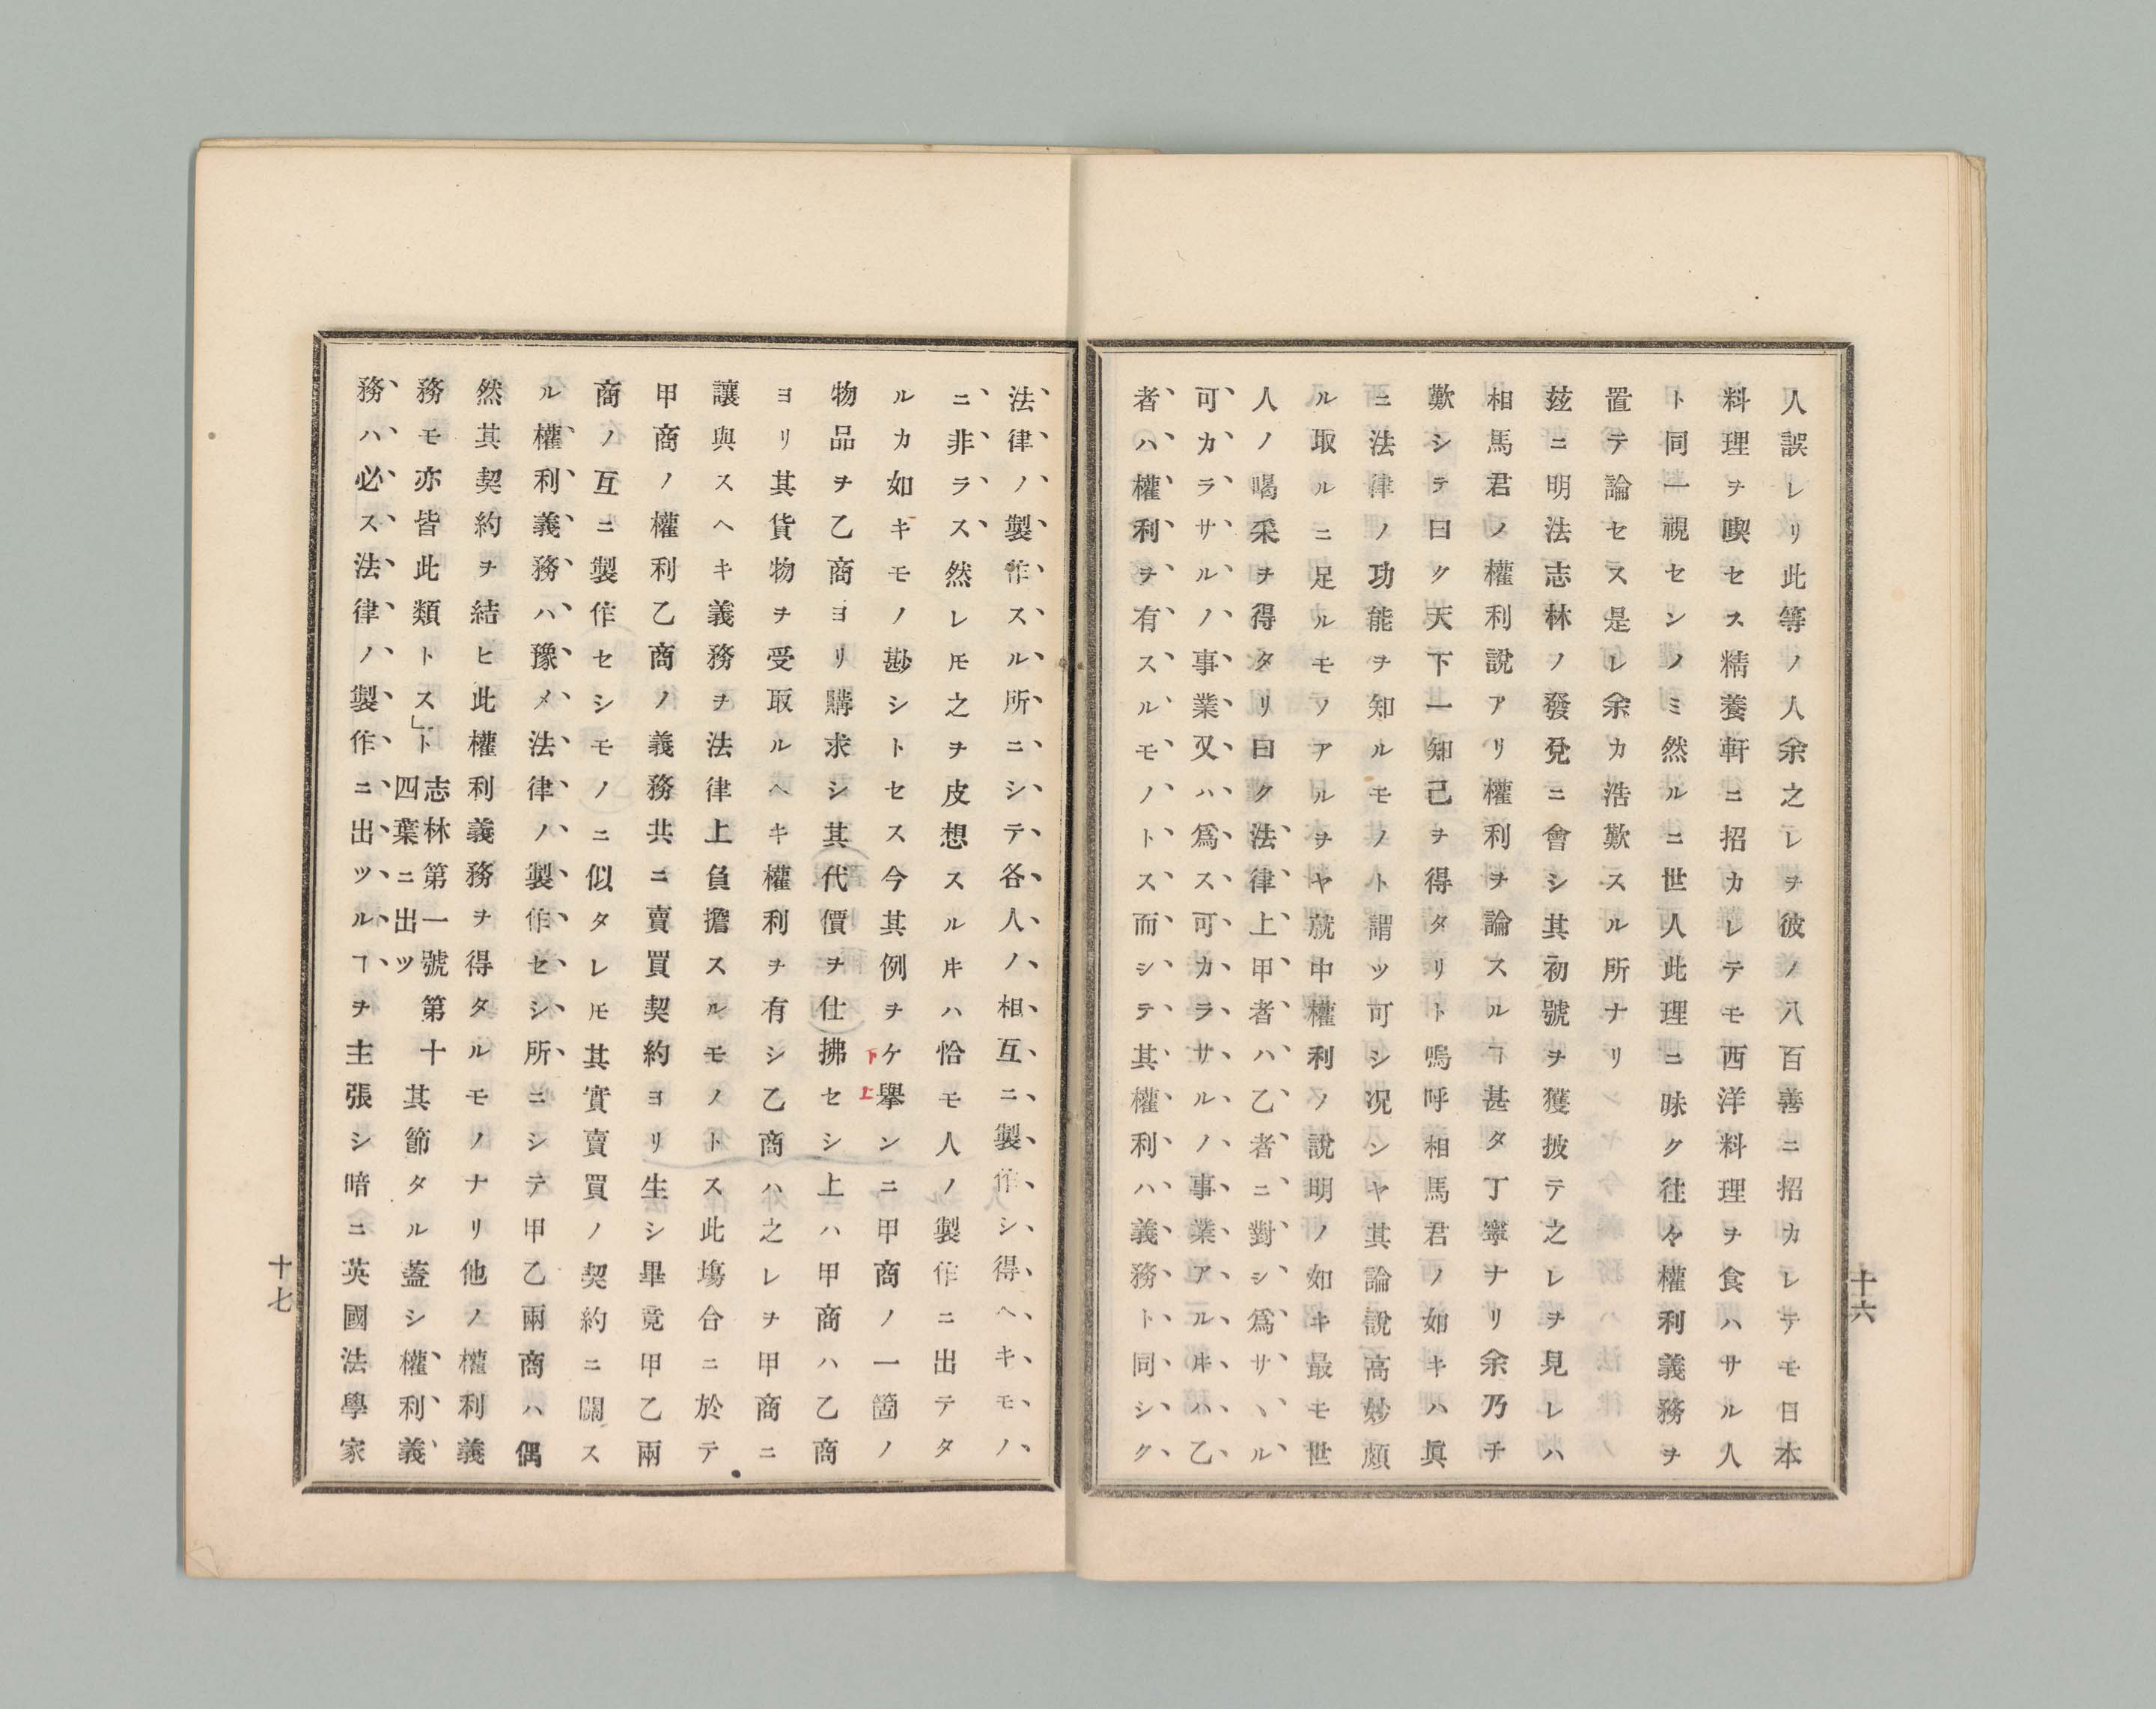 人誤レリ此等ノ人余之レヲ彼ノ八百善ニ招カレテモ日本
料理ヲ喫セス精養軒ニ招カレテモ西洋料理ヲ食ハサル人
ト同一視センノミ然ルニ世人此理ニ昧ク往々權利義務ヲ
置テ論セス是レ余カ浩歎スル所ナリ
玆ニ明法志林ノ發兌ニ會シ其初號ヲ獲披テ之レヲ見レハ
相馬君ノ權利說アリ權利ヲ論スルヿ甚タ丁寧ナリ余乃チ
歎シテ曰ク天下一知己ヲ得タリト嗚呼相馬君ノ如キハ眞
ニ法律ノ功能ヲ知ルモノト謂ツ可シ况シヤ其論說高妙頗
ル取ルニ足ルモノアルヲヤ就中權利ノ說明ノ如キ最モ世
人ノ喝采ヲ得タリ曰ク法律上甲者ハ乙者ニ對シ爲サヽル
可カラサルノ事業又ハ爲ス可カラサルノ事業アルヰハ乙
者ハ權利ヲ有スルモノトス而シテ其權利ハ義務ト同シク
十六
法律ノ製作スル所ニシテ各人ノ相互ニ製作シ得ヘキモノ
ニ非ラス然レ𪜈之ヲ皮想スルヰハ恰モ人ノ製作ニ出テタ
ルカ如キモノ尠シトセス今其例ヲケ擧ンニ甲商ノ一箇ノ
下上
物品ヲ乙商ヨリ購求シ其代價ヲ仕拂セシ上ハ甲商ハ乙商
ヨリ其貨物ヲ受取ルヘキ權利ヲ有シ乙商ハ之レヲ甲商ニ
讓與スヘキ義務ヲ法律上負擔スルモノトス此塲合ニ於テ
甲商ノ權利乙商ノ義務共ニ賣買契約ヨリ生シ畢竟甲乙兩
商ノ互ニ製作セシモノニ似タレ𪜈其實賣買ノ契約ニ關ス
ル權利義務ハ豫メ法律ノ製作セシ所ニシテ甲乙兩商ハ偶
然其契約ヲ結ヒ此權利義務ヲ得タルモノナリ他ノ權利義
務モ亦皆此類トス」ト志林第一號第十四葉ニ出ツ其節タル蓋シ權利義
務ハ必ス法律ノ製作ニ出ツルヿヲ主張シ暗ニ英國法學家
十七